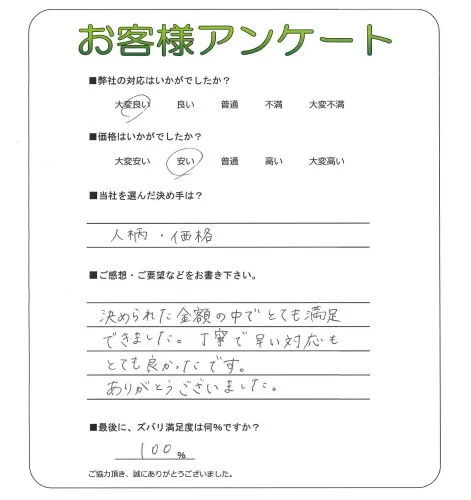 お客様アンケート
■弊社の対応はいかがでしたか？
大変良い 良い 普通 不満 大変不満
■価格はいかがでしたか？
大変安い 安い 普通 高い 大変高い
■当社を選んだ決め手は？
人柄・価格
■ご感想・ご要望などをお書き下さい。
決められた金額の中でとても満足
できました。丁寧で早い対応も
とても良かったです。
ありがとうございました。
■最後に、ズバリ満足度は何%ですか？
100%
ご協力頂き、誠にありがとうございました。